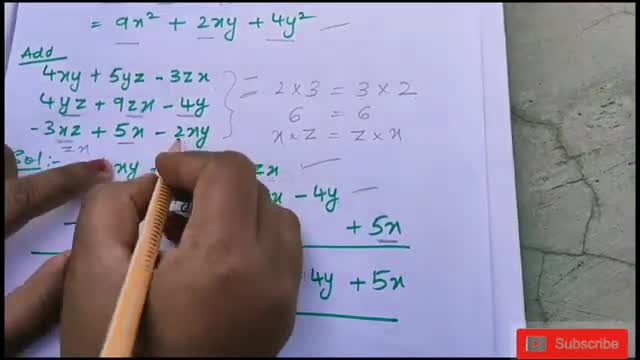 = 9x² + 2xy + 4y²
Add
4xy + 5yz - 3zx
4yz + 9zx - 4y
-3xz + 5x - 2xy
= 2 × 3 = 3 × 2
6 = 6
x × z = z × x
zx
Sol:-
xy
zx
x - 4y
+ 5x
4y + 5x
Subscribe